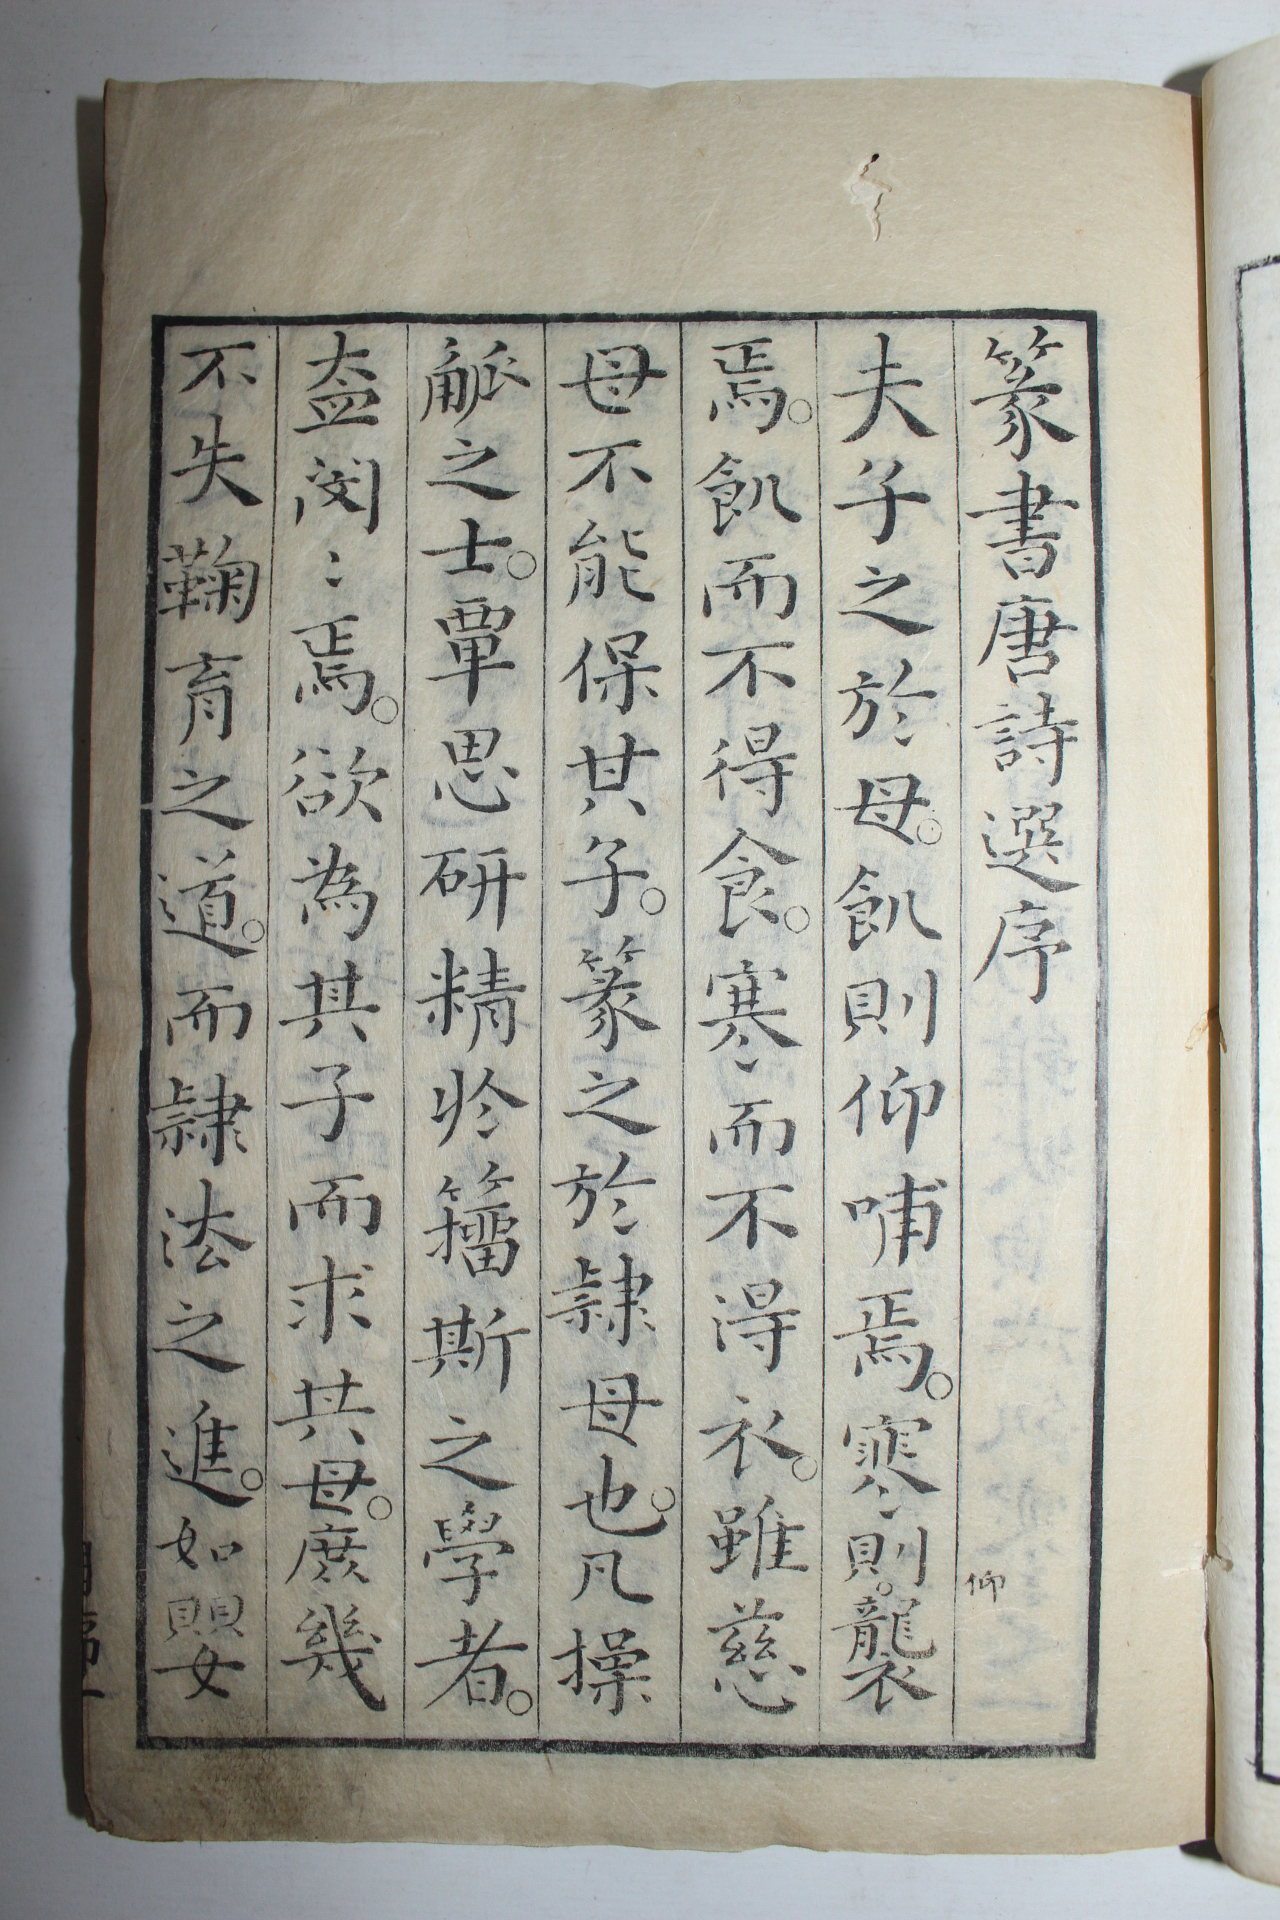 篆書唐詩選序
夫子之於母。飢則仰哺焉。寒則。襲衣
仰
焉。飢而不得食。寒而不得衣。雖慈
母不能保其子。篆之於隷母也。凡操
觚之士。覃思研精於籀斯之學者。
盍閔〻焉。欲為其子而求其母。庶幾
不失鞠育之道。而隷法之進。如嬰